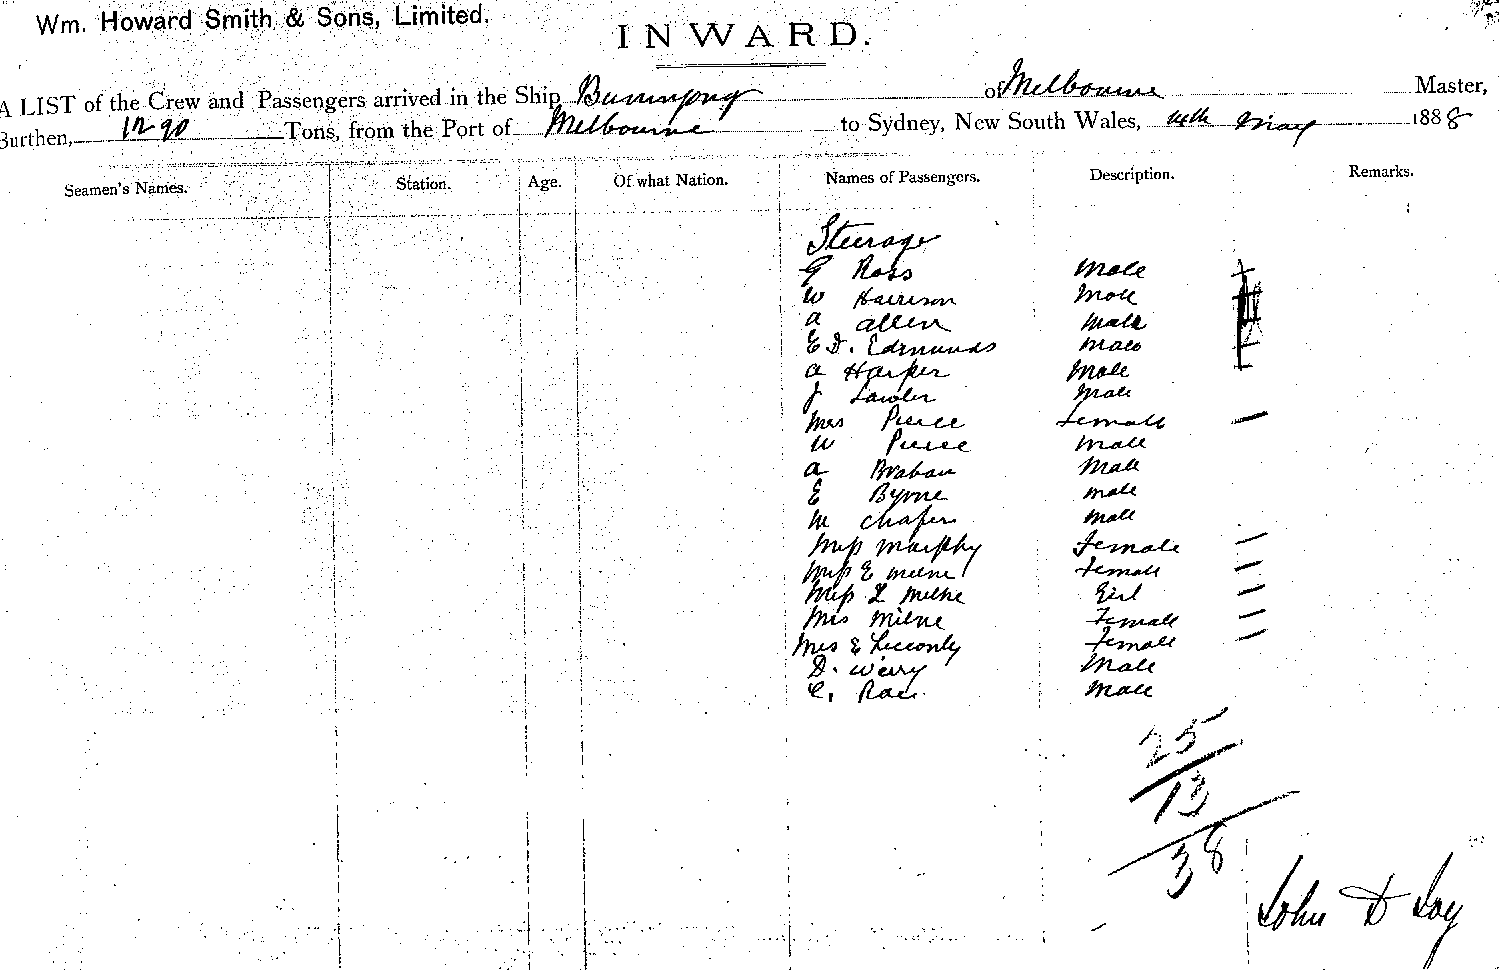 Wm. Howard Smith & Sons, Limited.
INWARD.
A LIST of the Crew and Passengers arrived in the Ship Buninyong of Melbourne Master,
Burthen, 1290 Tons, from the Port of Melbourne to Sydney, New South Wales, May 1888
Seamen's Names. Station. Age. Of what Nation. Names of Passengers. Description. Remarks.
Steerage
G Ross Male
W Harrison Male
A Allen Male
E D. Edmunds Male
A Harper Male
J Lawler Male
Mrs Pierce Female
W Pierce Male
A Braban Male
E Byrne Male
M Chafer Male
Miss Murphy Female
Miss E Milne Female
Miss L Milne Girl
Mrs Milne Female
Mrs E Female
D. Male
C. Rae Male
25
13
38
John D